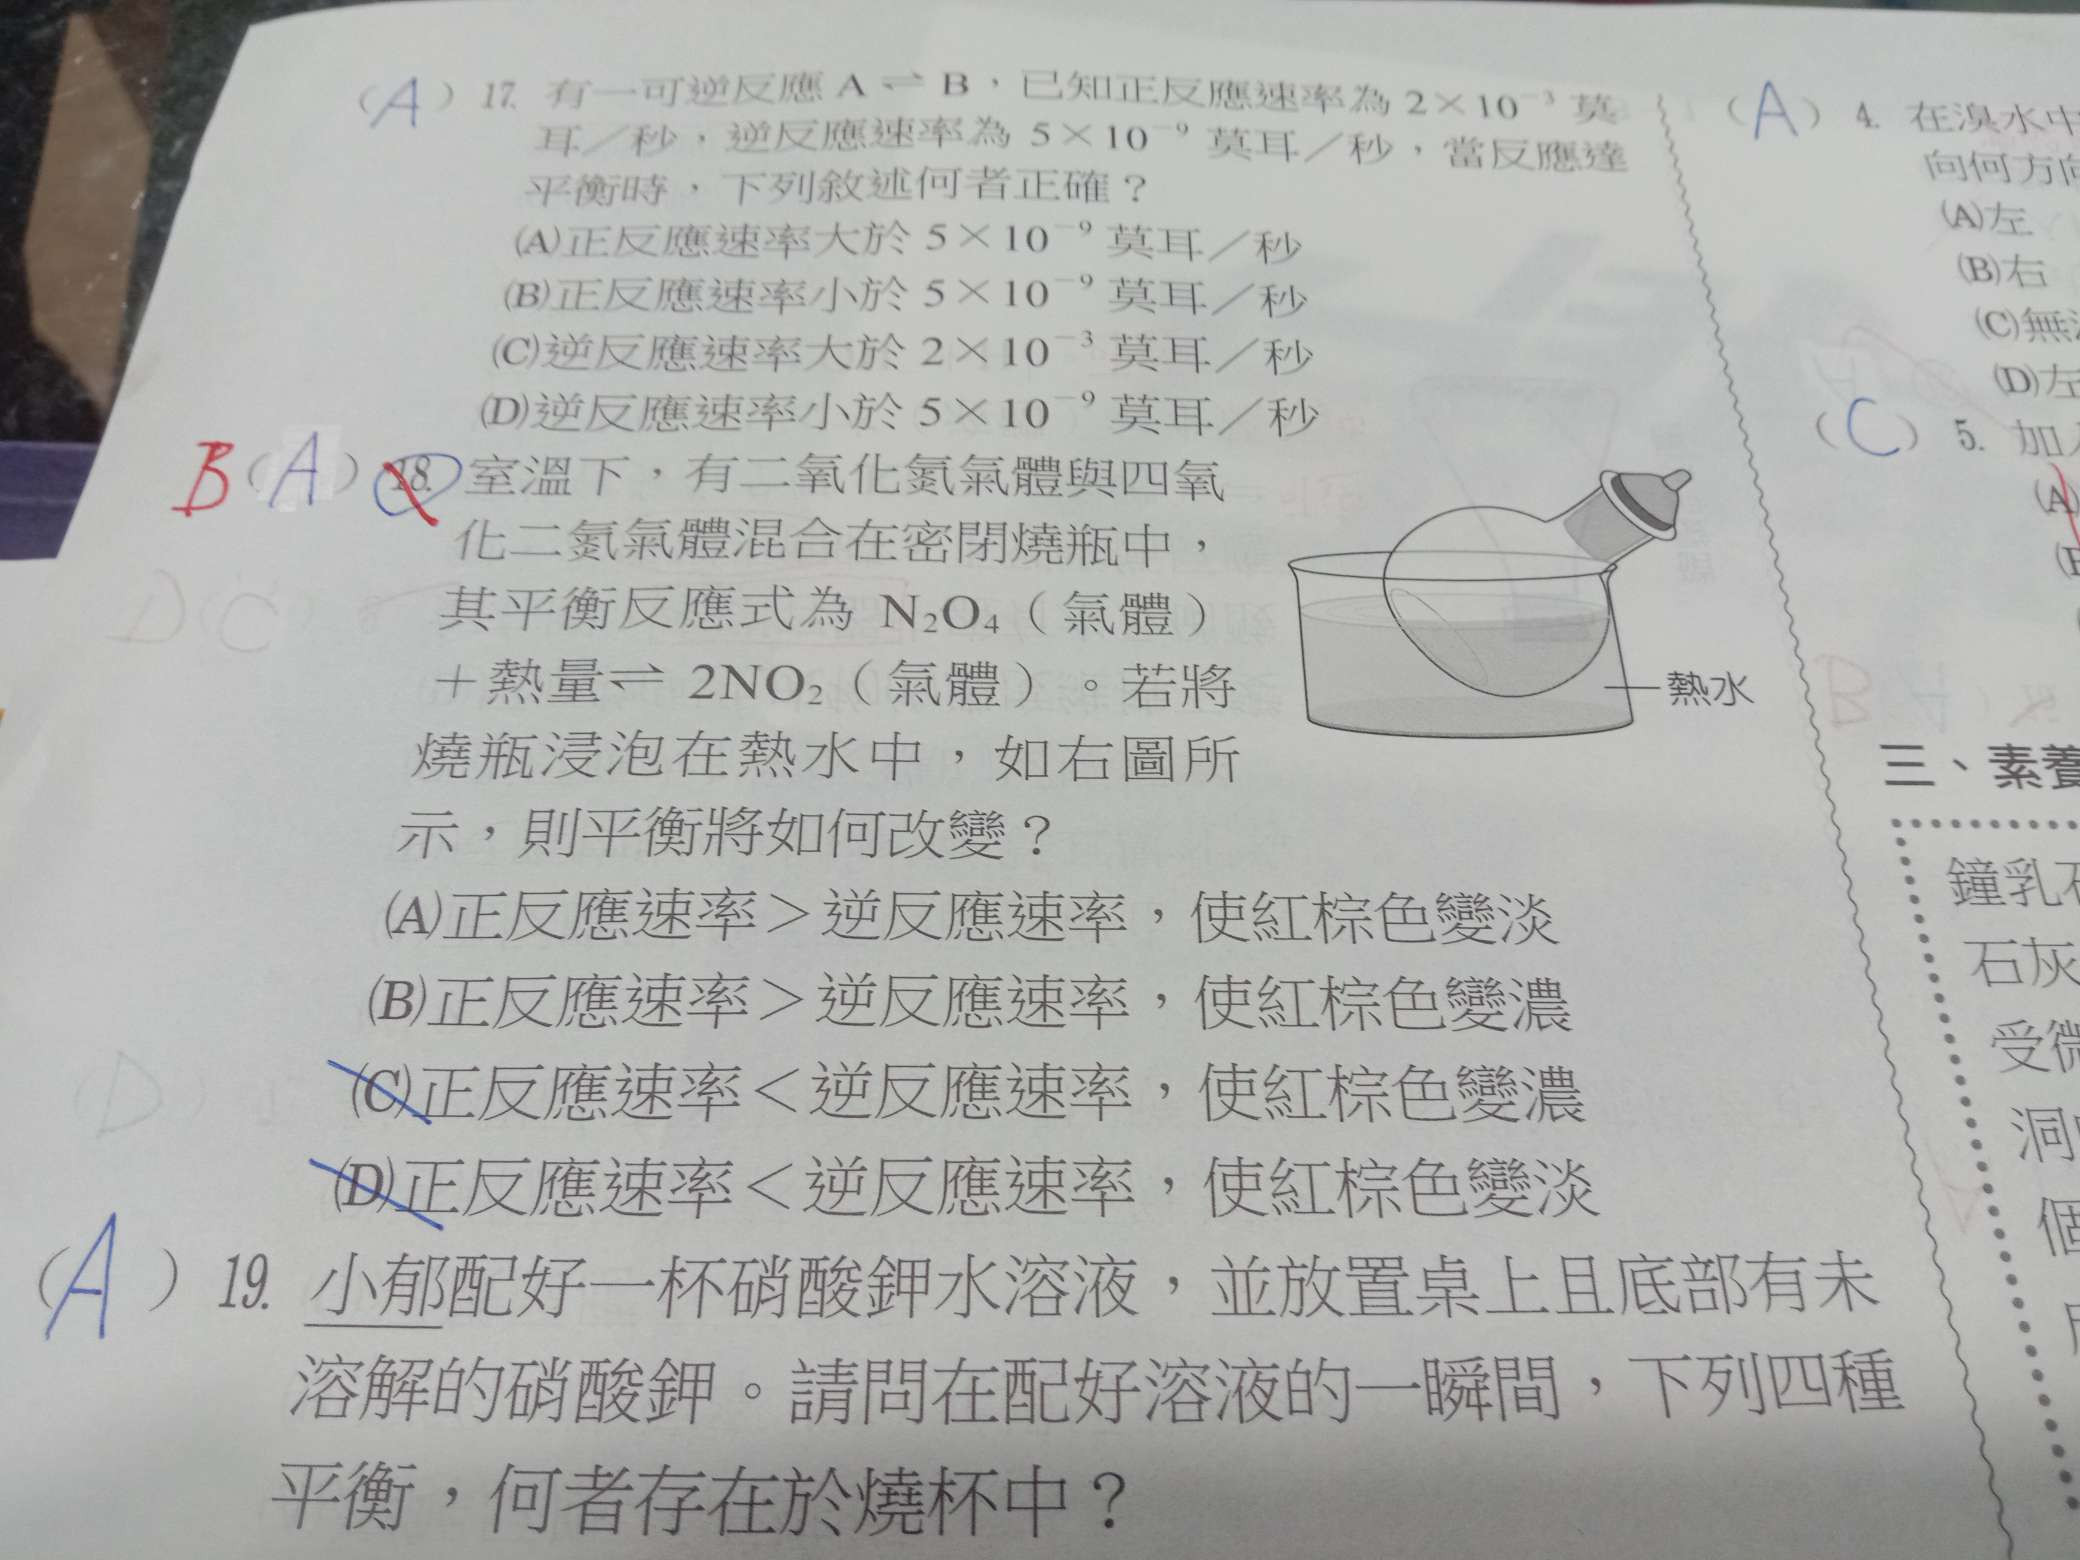 (A) 17. 有一可逆反應 A ⇌ B，已知正反應速率為 2×10⁻³ 莫
耳／秒，逆反應速率為 5×10⁻⁹ 莫耳／秒，當反應達
平衡時，下列敘述何者正確？
(A)正反應速率大於 5×10⁻⁹ 莫耳／秒
(B)正反應速率小於 5×10⁻⁹ 莫耳／秒
(C)逆反應速率大於 2×10⁻³ 莫耳／秒
(D)逆反應速率小於 5×10⁻⁹ 莫耳／秒
B (A) 18. 室溫下，有二氧化氮氣體與四氧
化二氮氣體混合在密閉燒瓶中，
其平衡反應式為 N₂O₄（氣體）
＋熱量⇌ 2NO₂（氣體）。若將
燒瓶浸泡在熱水中，如右圖所
示，則平衡將如何改變？
熱水
(A)正反應速率＞逆反應速率，使紅棕色變淡
(B)正反應速率＞逆反應速率，使紅棕色變濃
(C)正反應速率＜逆反應速率，使紅棕色變濃
(D)正反應速率＜逆反應速率，使紅棕色變淡
(A) 19. 小郁配好一杯硝酸鉀水溶液，並放置桌上且底部有未
溶解的硝酸鉀。請問在配好溶液的一瞬間，下列四種
平衡，何者存在於燒杯中？
(A) 4. 在溴水中
向何方向
(A)左
(B)右
(C)無
(D)左
(C) 5. 加
(A)
三、素養
鐘乳石
石灰
受微
洞
個